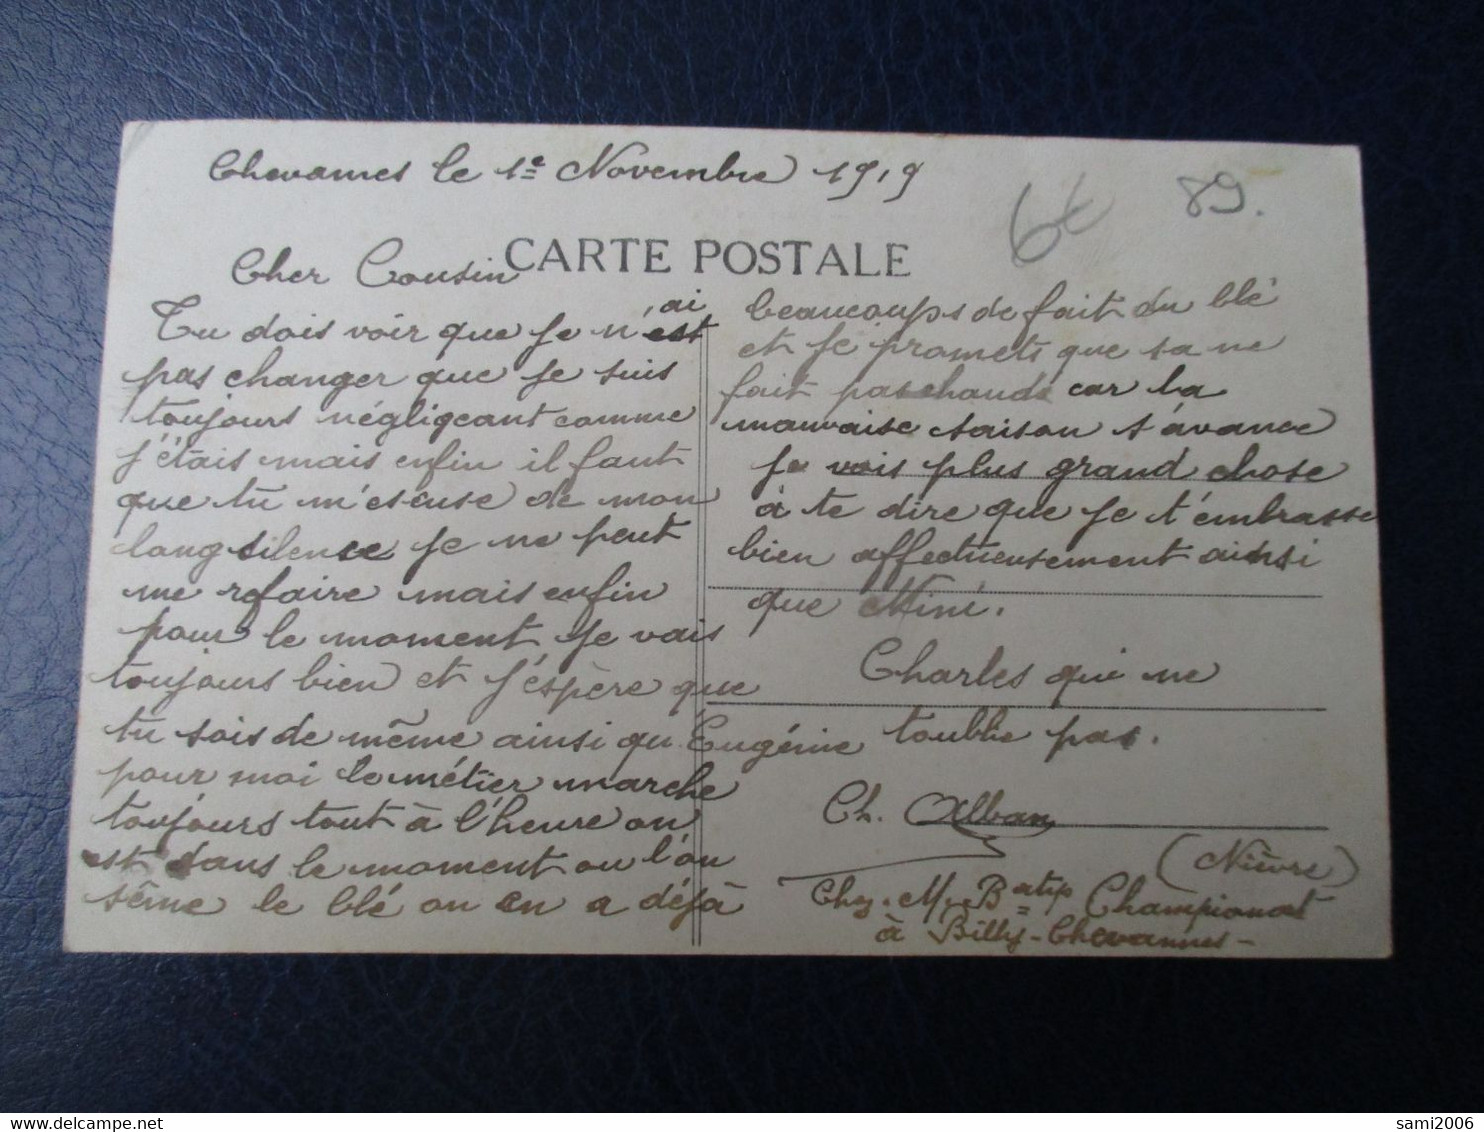 Chevannes le 1e Novembre 1919
6€
89.
CARTE POSTALE
Cher Cousin
Tu dois voir que je n'ai est
pas changer que je suis
toujours négligeant comme
j'étais mais enfin il faut
que tu m'escuse de mon
long silence je ne peut
me refaire mais enfin
pour le moment je vais
toujours bien et j'éspère que
tu sois de même ainsi qu'Eugénie
pour moi le métier marche
toujours tout à l'heure on
est dans le moment ou l'on
sême le blé on en a déjà
beaucoups de fait du blé
et je promets que sa ne
fait pas chaud car la
mauvaise saison s'avance
je vois plus grand chose
à te dire que je t'embrasse
bien affectueusement ainsi
que Mini.
Charles qui ne
toublie pas.
Ch. Alban
(Nièvre)
Chez M. Batip Championat
à Billy-Chevannes-
sami2006